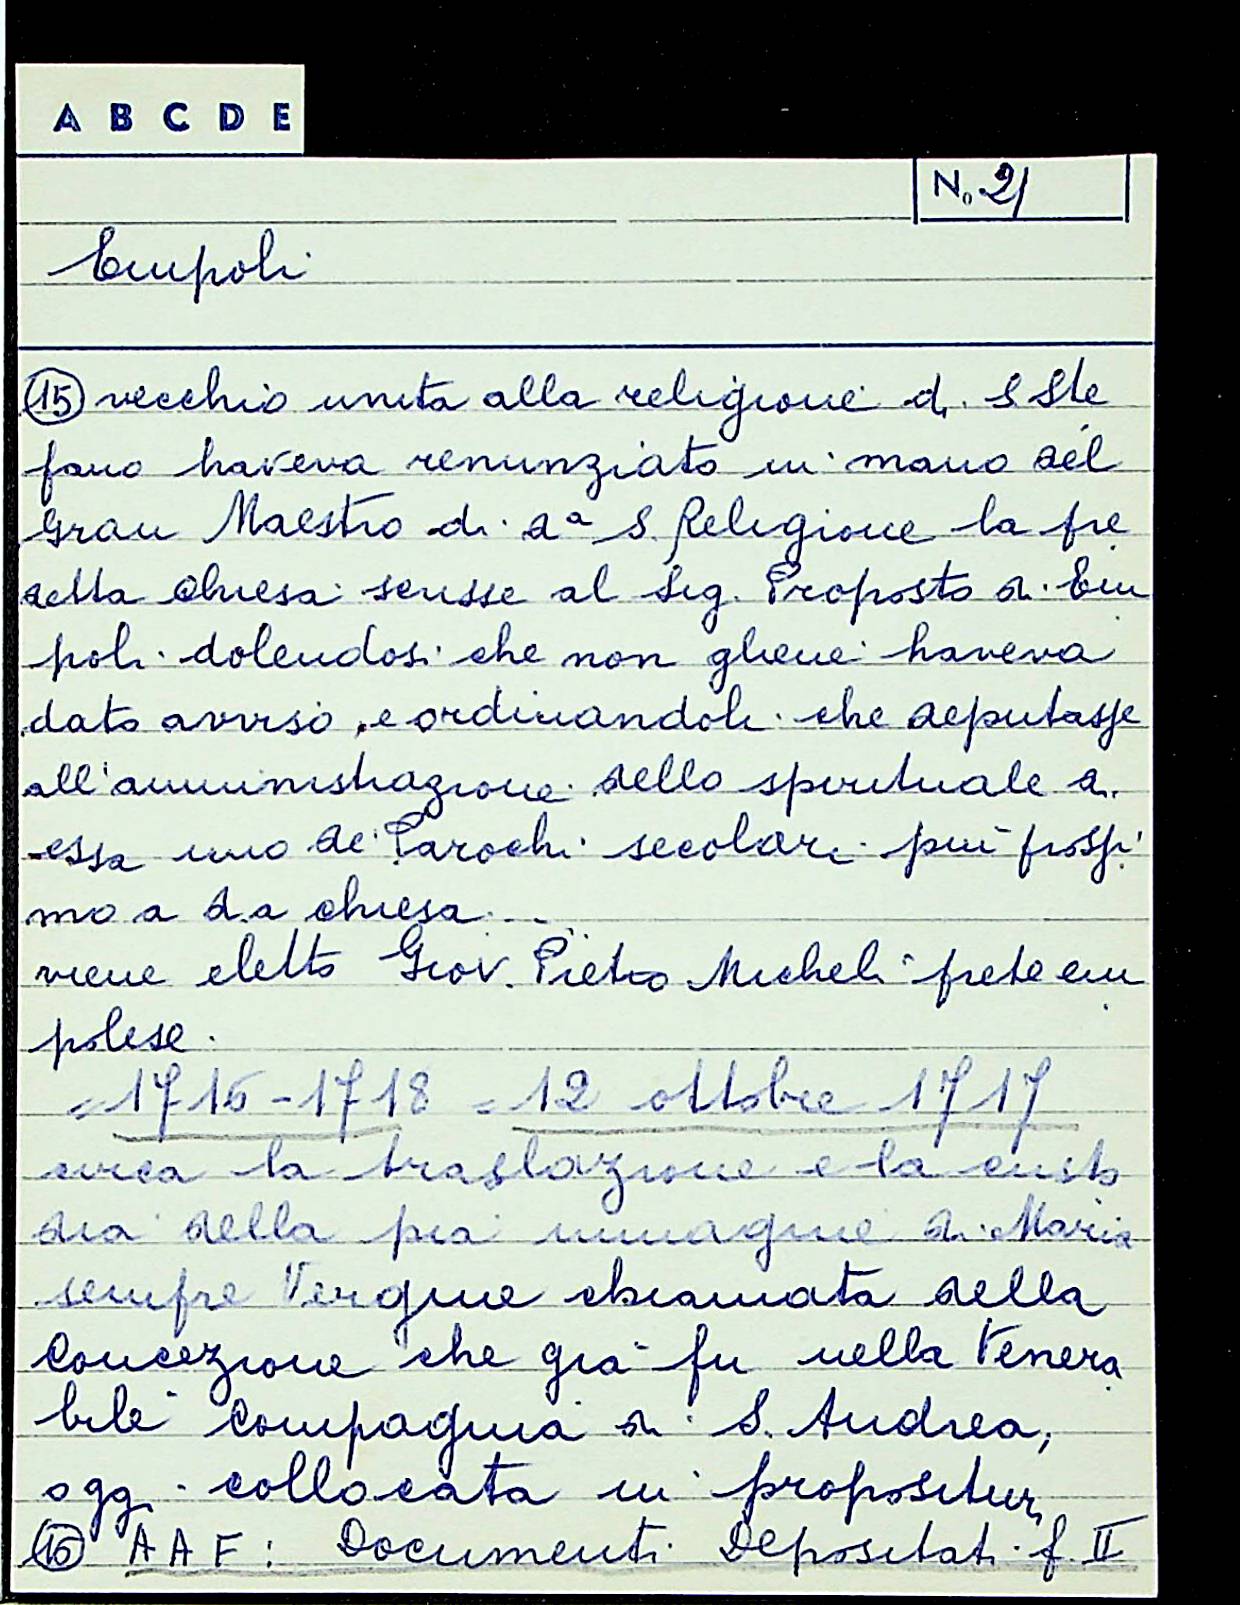 A B C D E
No 21
Empoli
(15) vecchio unita alla religione di S Ste
fano haveva renunziato in mano del
Gran Maestro di d.ª S. Religione la pre
detta chiesa scrisse al Sig. Proposto di Em
poli dolendosi che non gliene haveva
dato avviso, e ordinandoli che deputasse
all'amministrazione dello spirituale di
essa uno de' Parochi secolari più prossi
mo a d.a chiesa...
viene eletto Giov. Pietro Micheli prete em
polese.
= 1716-1718 = 12 ottobre 1717
circa la traslazione e la custo
dia della pia immagine di Maria
sempre Vergine chiamata della
Concezione che già fu nella Venera
bile Compagnia di S. Andrea,
oggi collocata in propositur
AAF: Documenti Depositati f. II